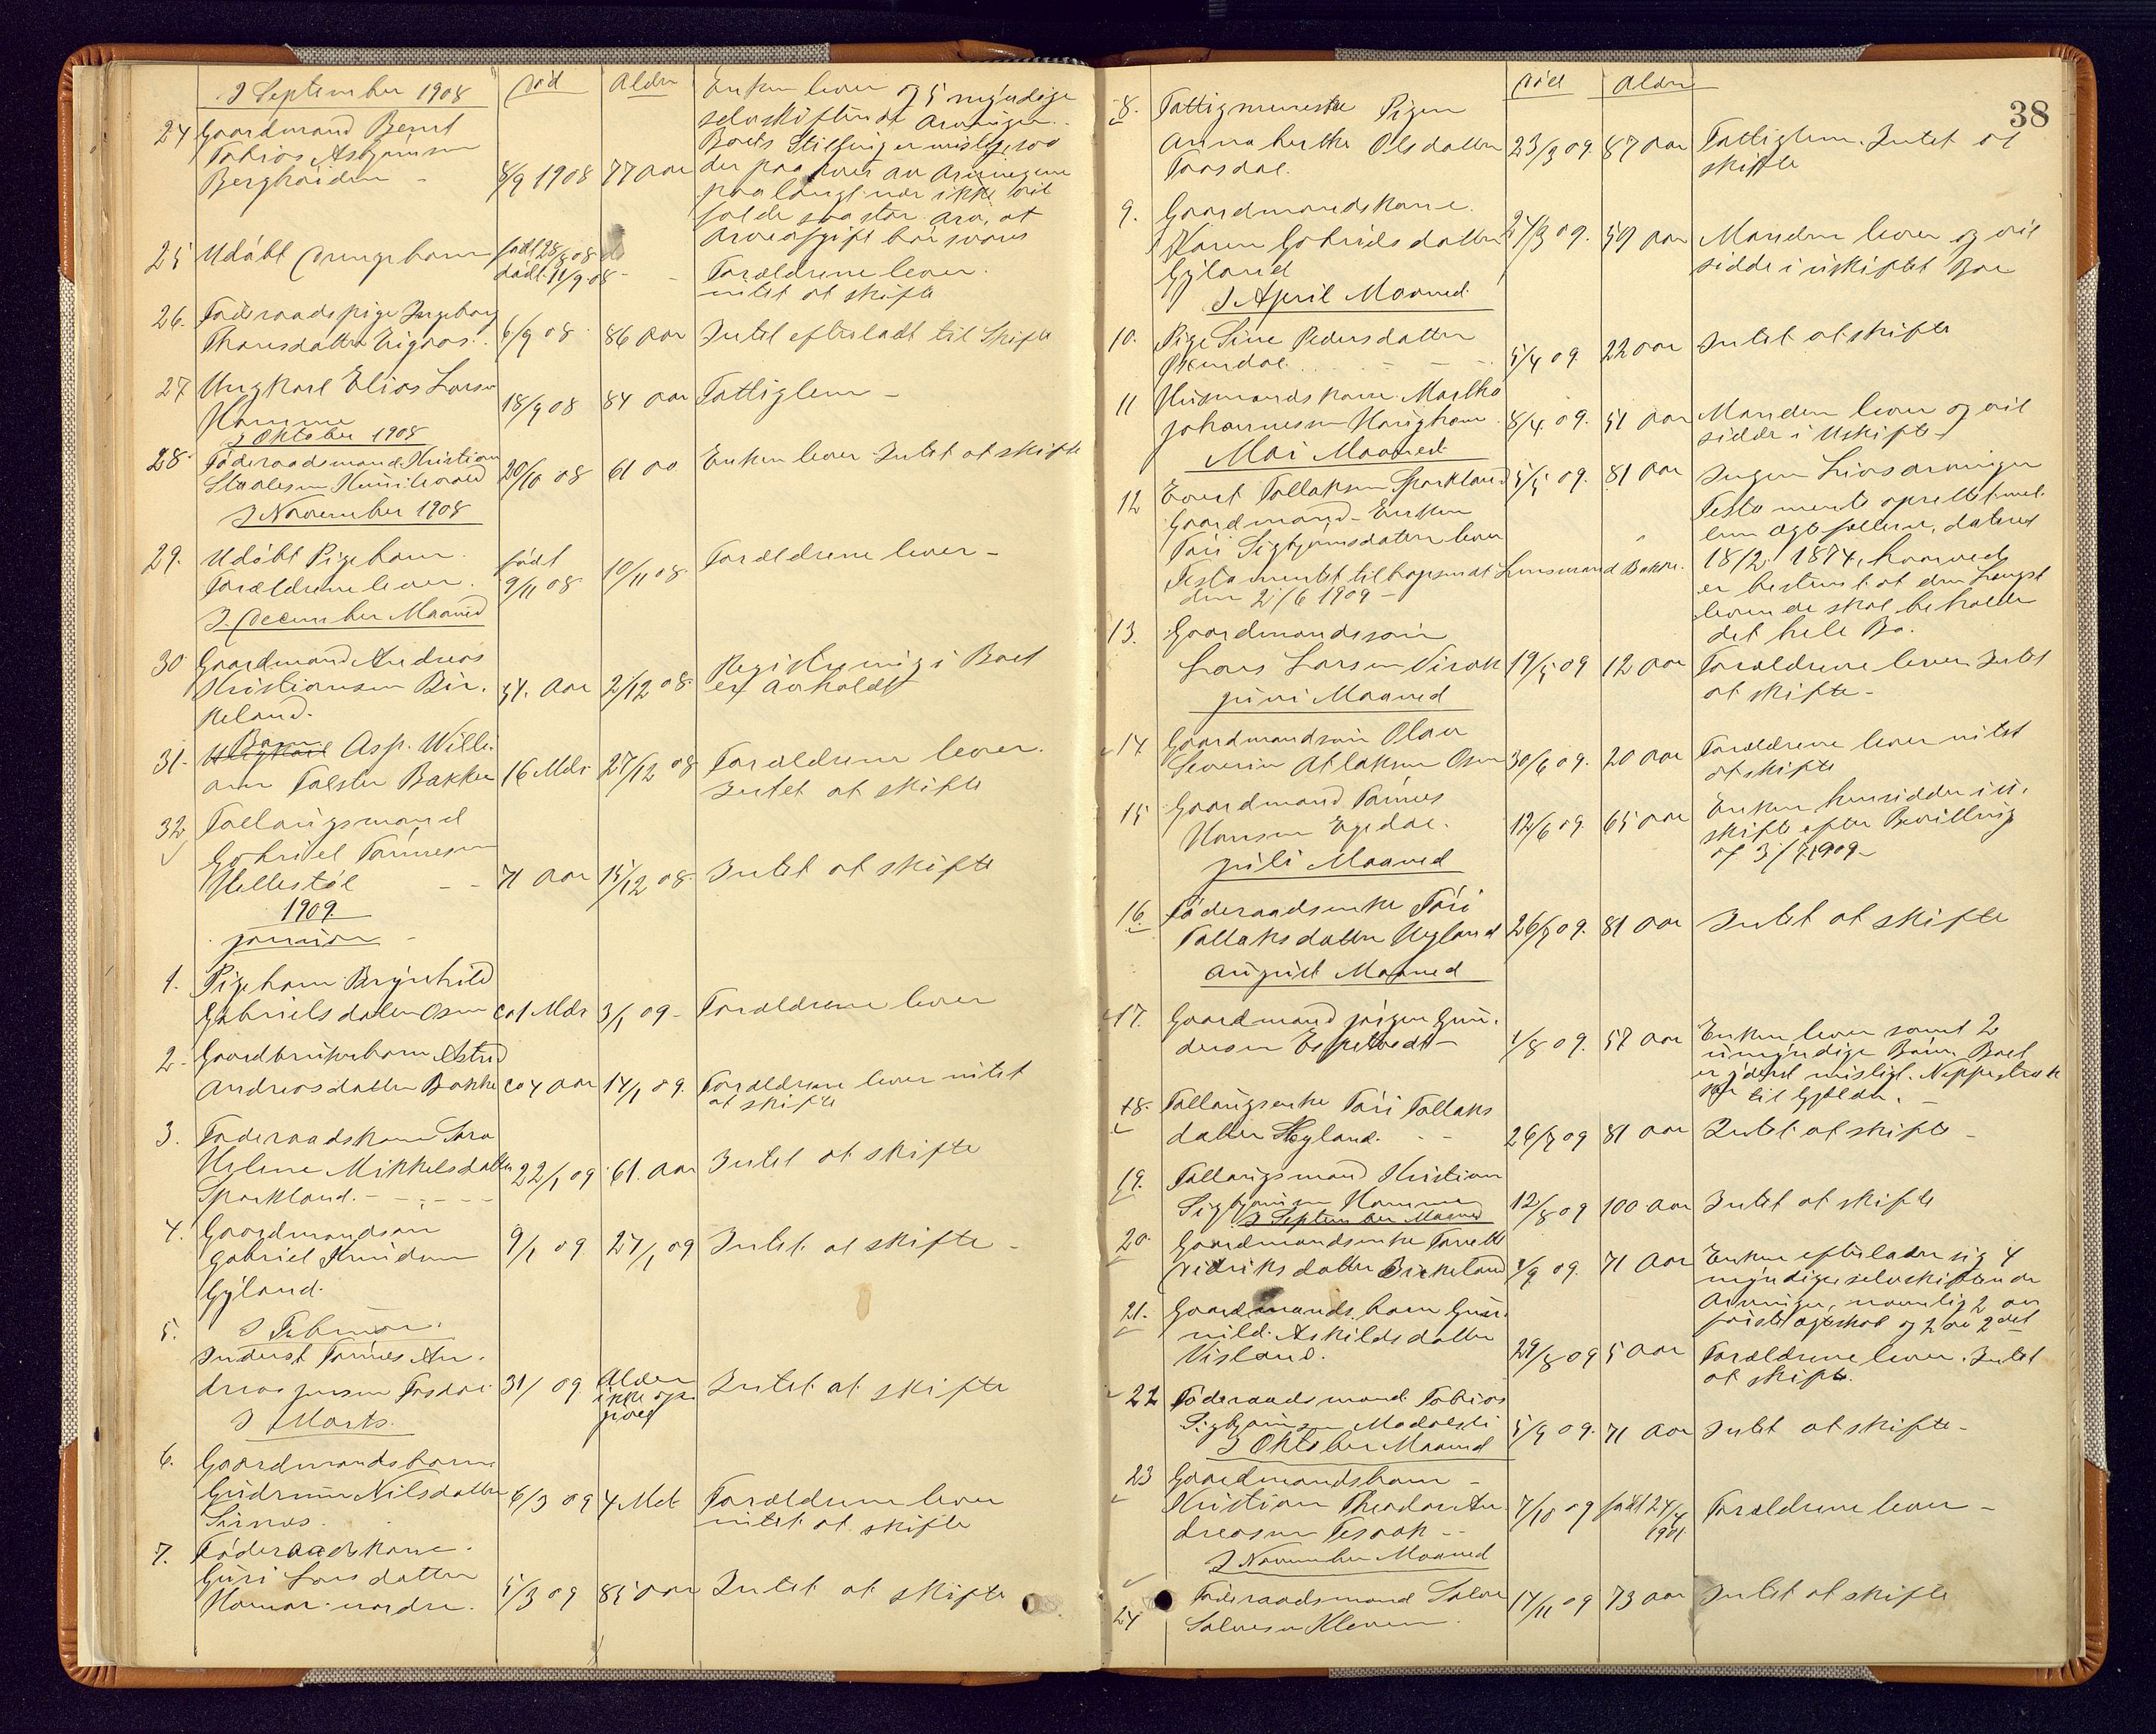 I September 1908 død Alder
24 Gaardmand Bernt
Tobias Asbjørnsen
Bergheiden - 8/9 1908 77 Aar
Enken lever og 5 myndige
selvskiftende Arvinger.
Boets Stilling er mislig, saa
der paa hver av Arvingerne
paa langt nær ikke vil
falde saa stor Arv, at
Arveafgift bør svares
25 Udøbt Drengebarn født 28/8 08
dødt 11/9 08 - Forældrene lever.
intet at skifte
26. Føderaadspige Ingeborg
Thorsdatter Eigaas. 6/9 08 86 Aar Intet efterladt til Skifte
27 Ungkarl Elias Larsen
Homme 18/9 08 84 Aar Fattiglem -
I Oktober 1908
28. Føderaadsmand Kristian
Staalesen 20/10 08 61 Aa Enken lever Intet at skifte
I November 1908
29. Udøbt Pigebarn.
Forældrene lever. født
9/11 08 10/11 08 Forældrene lever -
I December Maaned
30 Gaardmand Andreas
Kristiansen Bir-
keland. 54. Aar 2/12 08. Registrering i Boet
er avholdt
31- Barn Asp. Willi-
am Falster Bakke 16 Mdr 27/12 08 Forældrene lever.
Intet at skifte
32 Follaugsmand
Gabriel Tønnesen
Hellestøl - - 71 Aar 15/12 08. Intet at skifte
1909
januar -
1. Pigebarn Brynhild
Gabrielsdatter Osen ca 1 Mdr 3/1 09 - Forældrene lever
2- Gaardbrukerbarn Astrid
Andreasdatter Bakke ca 4 Aar 14/1 09. Forældrene lever intet
at skifte
3. Føderaadskone Sara
Helene Mikkelsdatter
Sparkland. - - - - 22/1 09 61. Aar Intet at skifte
4. Gaardmandsøn
Gabriel Knudsen
Gyland. 9/1 09 27/1 09 Intet at skifte -
5. I Februar.
Inderst Tønnes An-
dreas jensen Tosdal 31/ 09 Alder
ikke op-
givet Intet at skifte
I Marts.
6. Gaardmandsbarn
Gudrun Nilsdatter
Sirnes. 6/3 09 4 Md. Forældrene lever
intet at skifte
7. Føderaadskone.
Guri Larsdatter
Homar nordre. 5/3 09 85 Aar Intet at skifte
38
død Alder
8. Fattigmenneske Pigen
Anna Berthe Olsdatter
Tosdal. 23/3 09. 87 Aar Fattiglem. Intet at
skifte
9. Gaardmandskone
Karen Gabrielsdatter
Gyland 27/3 09. 59 Aar Manden lever og vil
sidde i uskiftet Boe
I April Maaned.
10. Pige Sine Pedersdatter
Øksendal. . . . - - - 5/4 09. 22 aar Intet at skifte
11 Husmandskone Martha
johannesen Haugham 8/4. 09. 51 Aar Manden lever og vil
sidde i Uskifte
Mai Maaned
12 Evert Tollaksen Sparkland 5/5 09. 81 Aar
Gaardmand - Enken
Tøri Sigbjørnsdatter lever
Testamentet tilbagesendt Lensmand Bakke.
den 2/6 1909 -
Ingen Livsarvinger
Testamente oprettet mel-
lem ægtefællerne, dateret
18/2 1874, hvorved
er bestemt at den Længst
levende skal beholde
det hele Bo.
13. Gaardmandssøn
Lars Larsen Virak 19/5 09 12 Aar Forældrene lever Intet
at skifte -
juni Maaned
14. Gaardmandsøn Olav
Severin Atlaksen Osen 30/6 09. 20 Aar Forældrene lever intet
at skifte
15 Gaardmand Tønnes
Hansen Egedal. 12/6 09. 65 Aar Enken hensidder i u-
skifte efter Bevilling
af 3/7 1909 -
juli Maaned
16 Føderaadsenke Tøri
Tollaksdatter Høyland 26/7 09. 81 Aar Intet at skifte
August Maaned
17. Gaardmand jørgen Gun-
dersen Espetvedt - 1/8 09. 57 Aar Enken lever samt 2
umyndige Børn Boet
er yderst misligt. Neppe strækker
til Gjælden. -
18. Follaugsenke Tøri Tollaks
datter Høyland. - - 26/7 09 81 Aar Intet at skifte -
19. Follaugsmand Kristian
Sigbjørnsen Homme 12/8 09 100 Aar Intet at skifte
I September Maaned
20. Gaardmandsenke Tarald
Didriksdatter Birkeland 1/9 09. 71 Aar Enken efterlader sig 4
myndige selvskiftende
Arvinger, nemlig 2 av
første ægteskab og 2 av 2det
21. Gaardmandsbarn Gun-
nild Askildsdatter
Visland. 29/8 09 5 Aar Forældrene lever. Intet
at skifte.
22 Føderaadsmand Tobias
Sigbjørnsen Modalsli 5/9 09. 71 Aar Intet at skifte -
I Oktober Maaned
23 Gaardmandsbarn -
Kristian Theodor An-
dreasen Tesaak - - 7/10 09 født 24/4
1901 Forældrene lever -
I November Maaned
24 Føderaadsmand Salve
Salvesen Kleven. 14/11 09 73 aar Intet at skifte